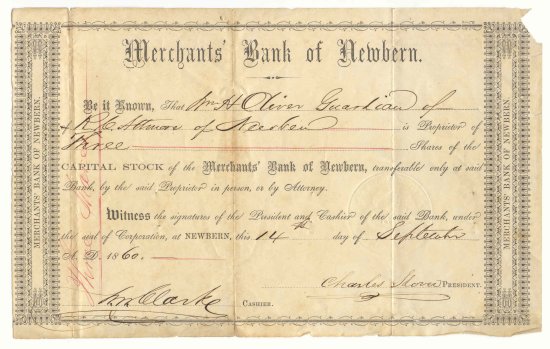 Merchants' Bank of Newbern.
Be it Known, That Wm H Oliver Guardian of
of Newbern is Proprietor of
Three Shares of the
CAPITAL STOCK of the Merchants' Bank of Newbern, transferable only at said
Bank, by the said Proprietor in person, or by Attorney.
Witness the signatures of the President and Cashier of the said Bank, under
the seal of Corporation, at NEWBERN, this 14th day of September
A. D. 1860.
Charles Slover PRESIDENT.
Wm Clarke CASHIER.
MERCHANTS' BANK OF NEWBERN.
MERCHANTS' BANK OF NEWBERN.